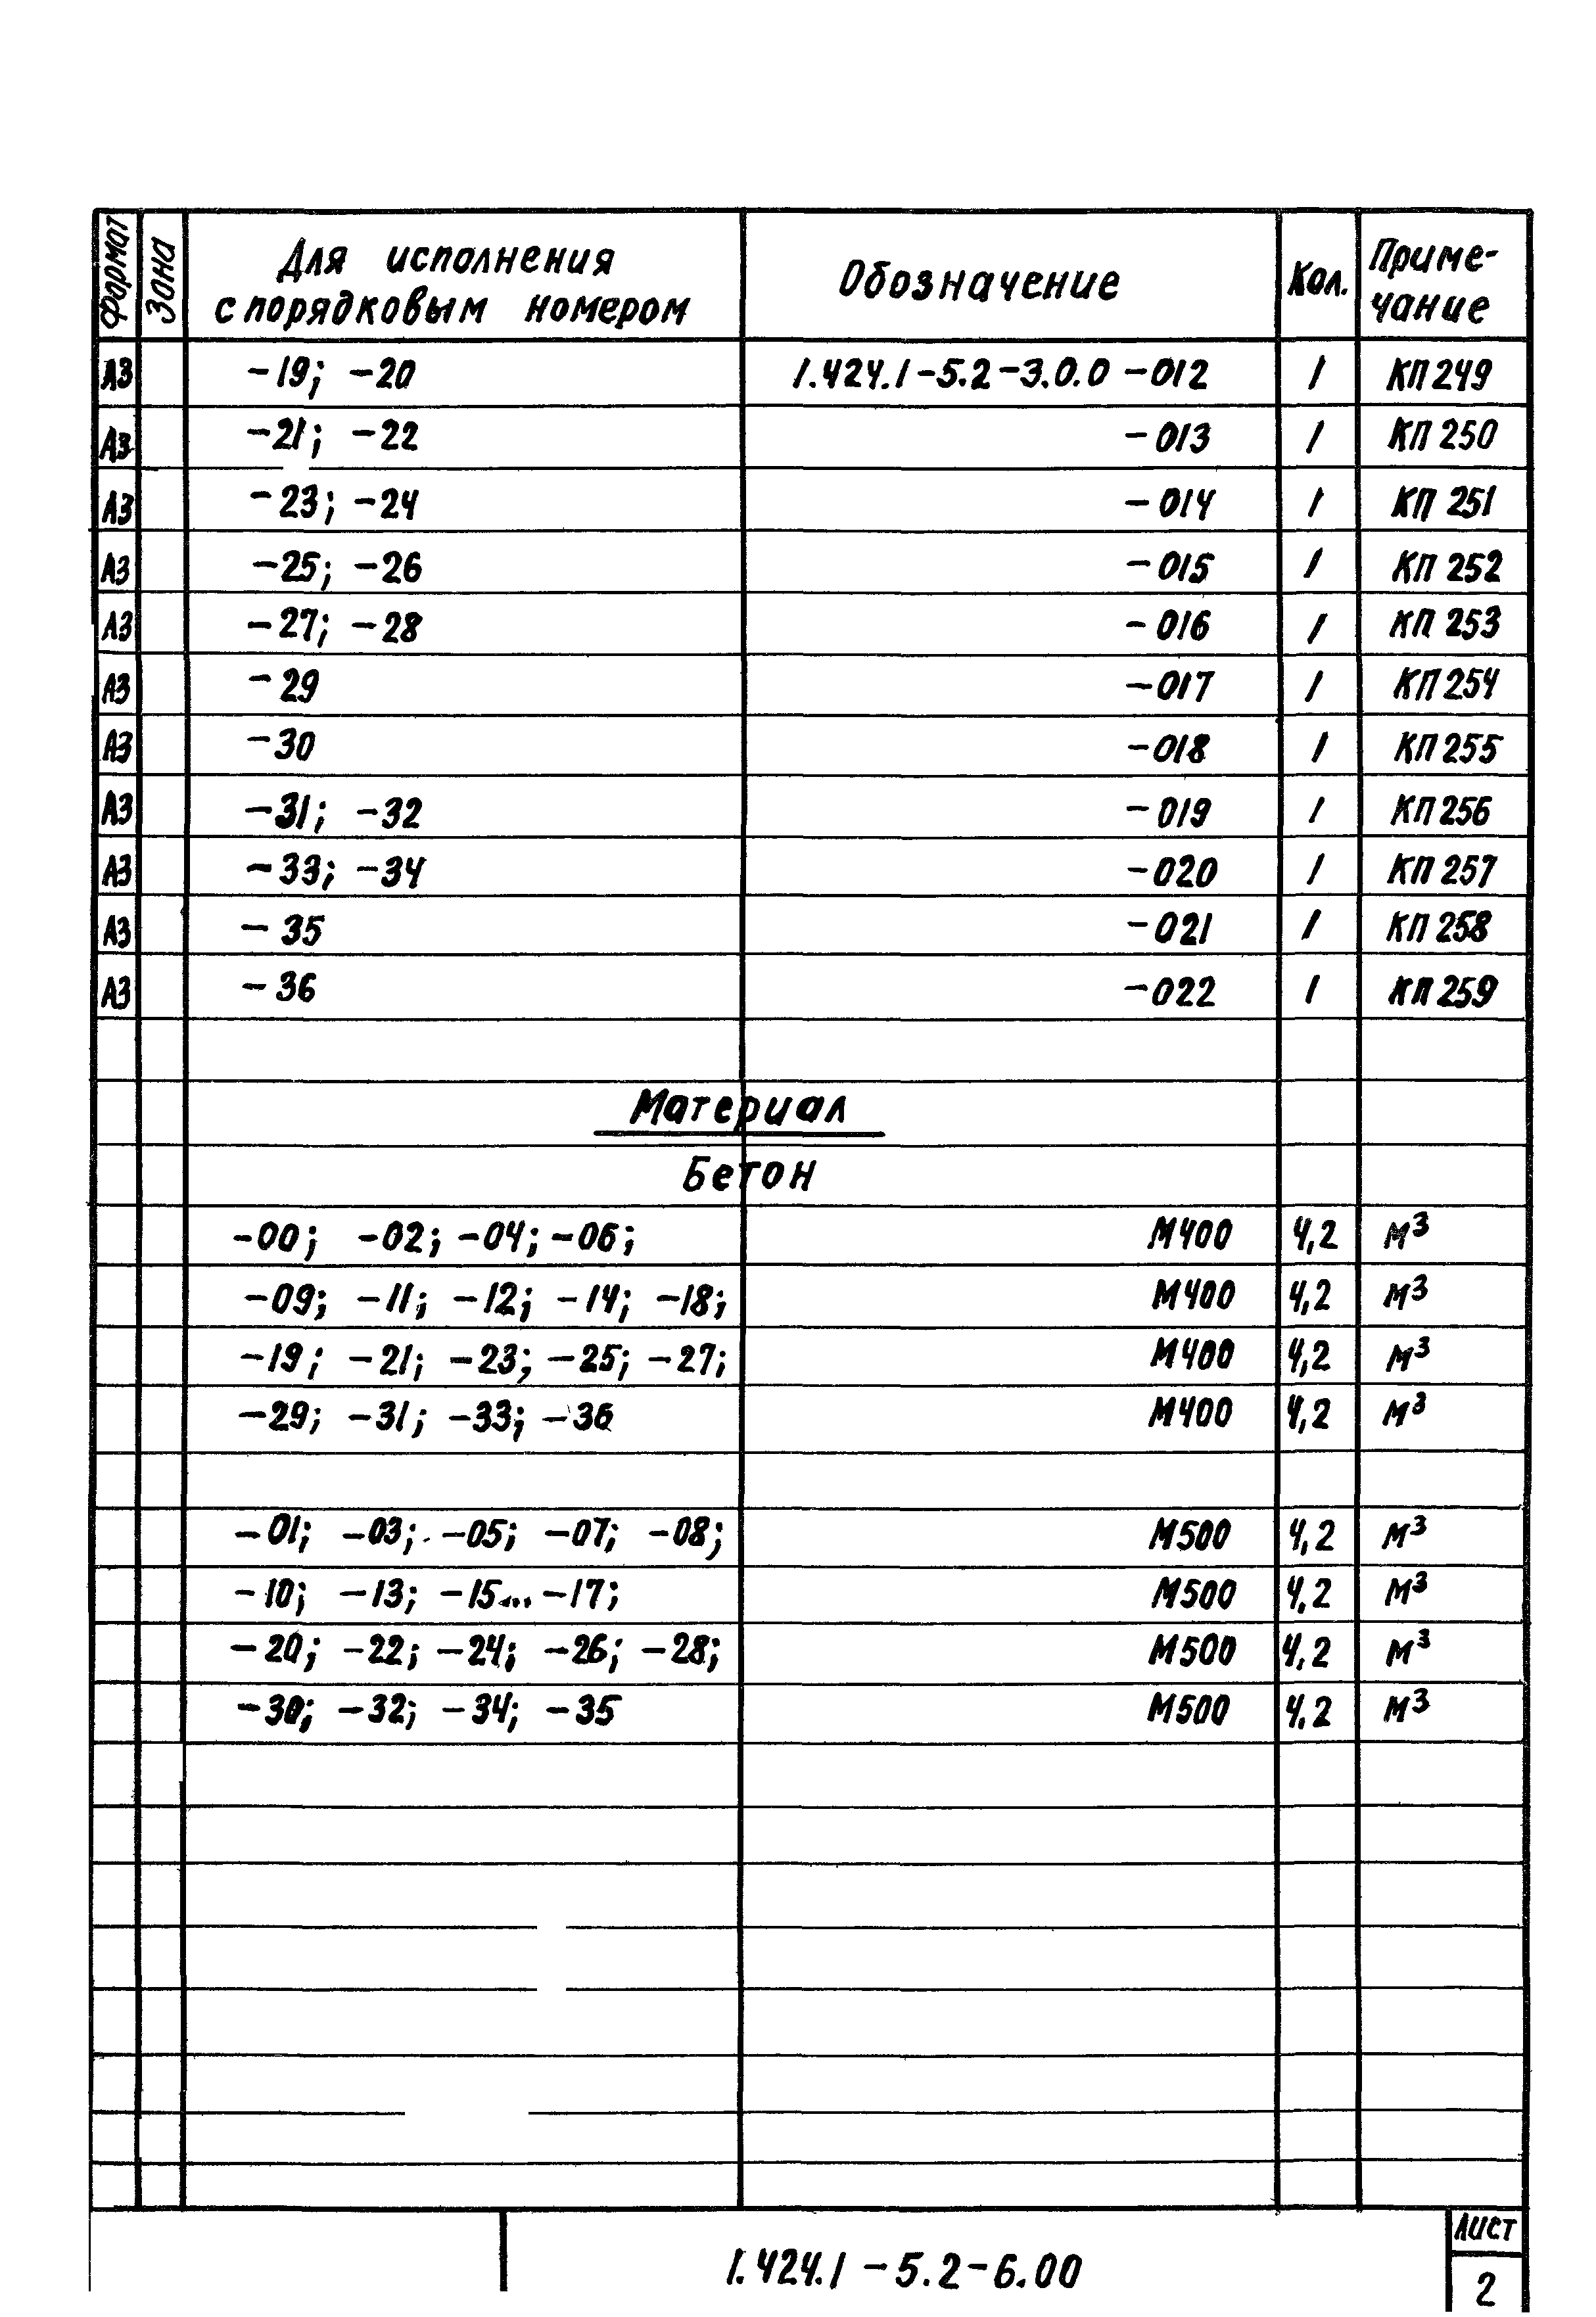 Формат Зона Для исполнения с порядковым номером Обозначение Кол. Приме-чание
А3 -19; -20 1.424.1-5.2-3.0.0 -012 1 КП249
А3 -21; -22 -013 1 КП 250
А3 -23; -24 -014 1 КП 251
А3 -25; -26 -015 1 КП 252
А3 -27; -28 -016 1 КП 253
А3 -29 -017 1 КП 254
А3 -30 -018 1 КП 255
А3 -31; -32 -019 1 КП 256
А3 -33; -34 -020 1 КП 257
А3 -35 -021 1 КП 258
А3 -36 -022 1 КП 259
Материал
Бетон
-00; -02; -04; -06; М400 4,2 м³
-09; -11; -12; -14; -18; М400 4,2 м³
-19; -21; -23; -25; -27; М400 4,2 м³
-29; -31; -33; -36 М400 4,2 м³
-01; -03; -05; -07; -08; М500 4,2 м³
-10; -13; -15... -17; М500 4,2 м³
-20; -22; -24; -26; -28; М500 4,2 м³
-30; -32; -34; -35 М500 4,2 м³
1.424.1 -5.2-6.00
Лист
2